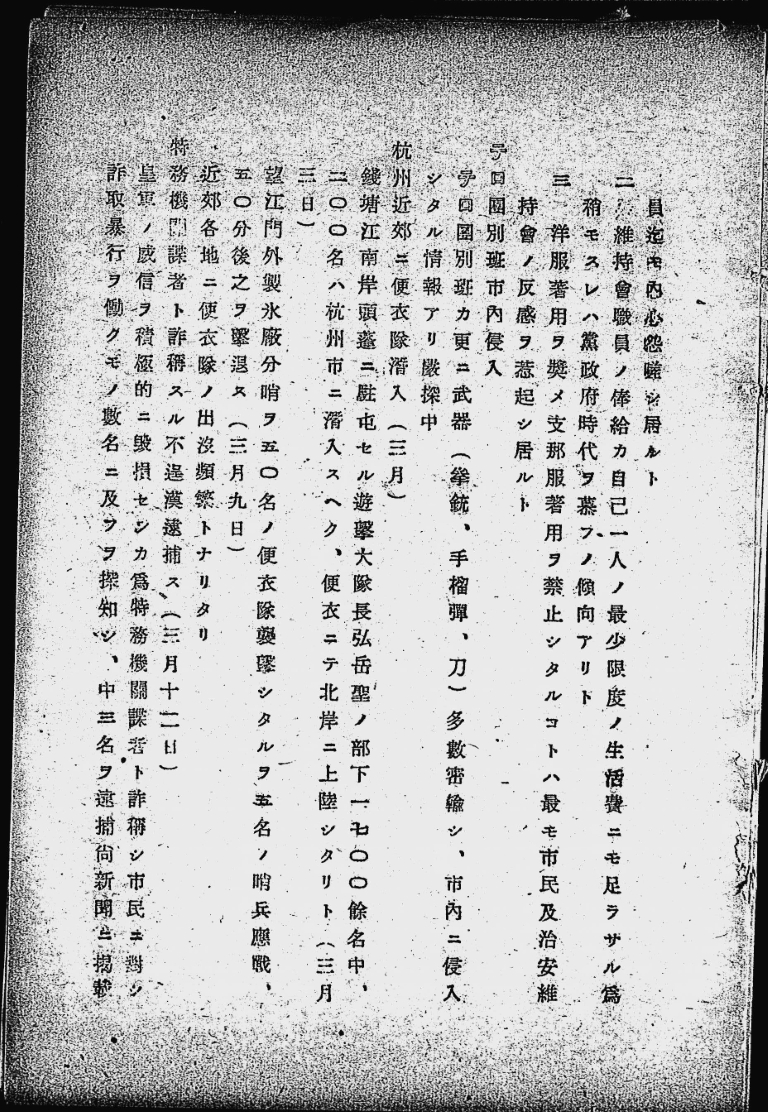 員迄モ內心怨嗟シ居ルト
二、維持會職員ノ俸給カ自己一人ノ最少限度ノ生活費ニモ足ラサル爲
稍モスレハ黨政府時代ヲ慕フノ傾向アリト
三、洋服著用ヲ奬メ支那服著用ヲ禁止シタルコトハ最モ市民及治安維
持會ノ反感ヲ惹起シ居ルト
テロ團別班市內侵入
テロ團別班カ更ニ武器（拳銃、手榴彈、刀）多數密輸シ、市內ニ侵入
シタル情報アリ嚴探中
杭州近郊ニ便衣隊潛入（三月）
錢塘江南岸頭蓬ニ駐屯セル遊擊大隊長弘岳聖ノ部下一七〇〇餘名中、
二〇〇名ハ杭州市ニ潛入スヘク、便衣ニテ北岸ニ上陸シタリト（三月
三日）
望江門外製氷廠分哨ヲ五〇名ノ便衣隊襲擊シタルヲ五名ノ哨兵應戰、
五〇分後之ヲ擊退ス（三月九日）
近郊各地ニ便衣隊ノ出沒頻繁トナリタリ
特務機關諜者ト詐稱スル不逞漢逮捕ス（三月十二日）
皇軍ノ威信ヲ積極的ニ毀損センカ爲特務機關諜者ト詐稱シ市民ニ對シ
詐取暴行ヲ働クモノ數名ニ及フヲ探知シ、中三名ヲ逮捕尙新聞ニ揭載